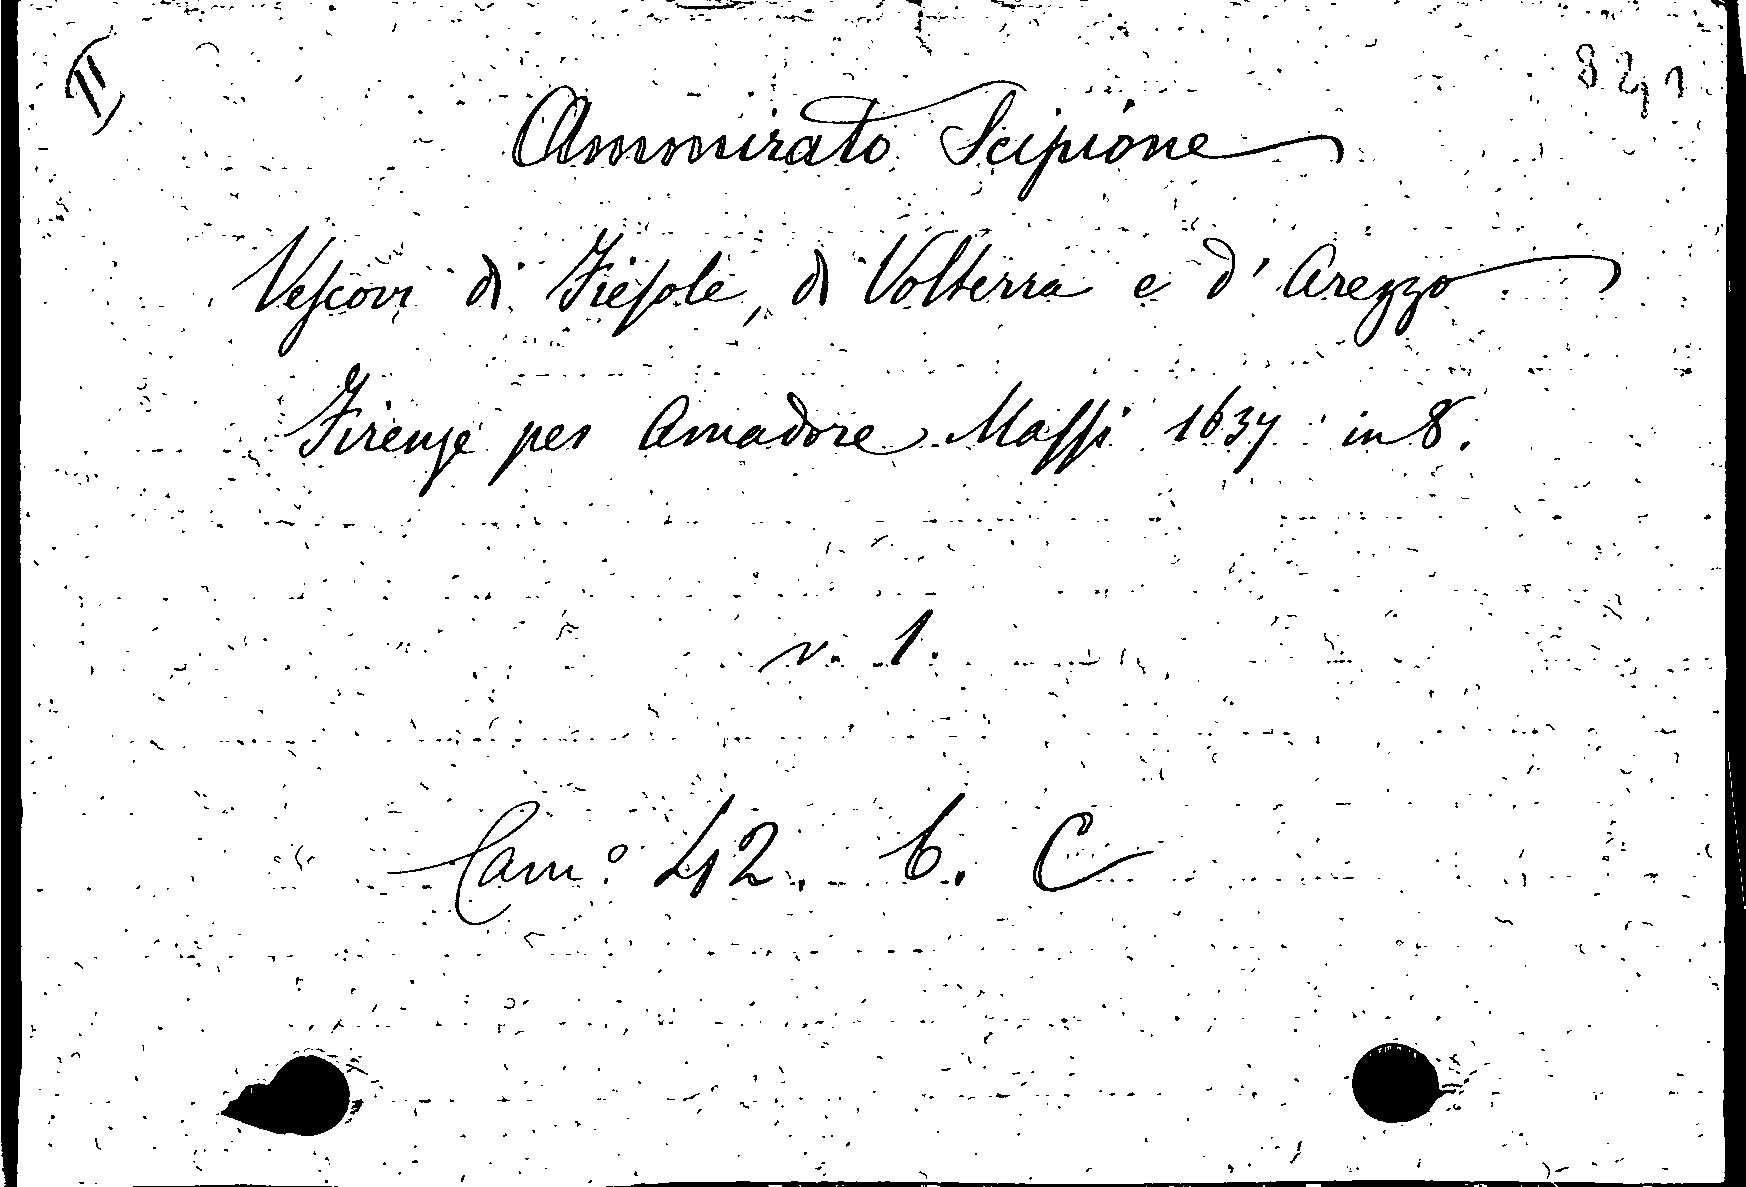 II
82,1
Ammirato Scipione
Vescovi di Fiesole, di Volterra e d' Arezzo
Firenze per Amadore Massi 1637 in 8.
v. 1.
Cam° 42. b. C